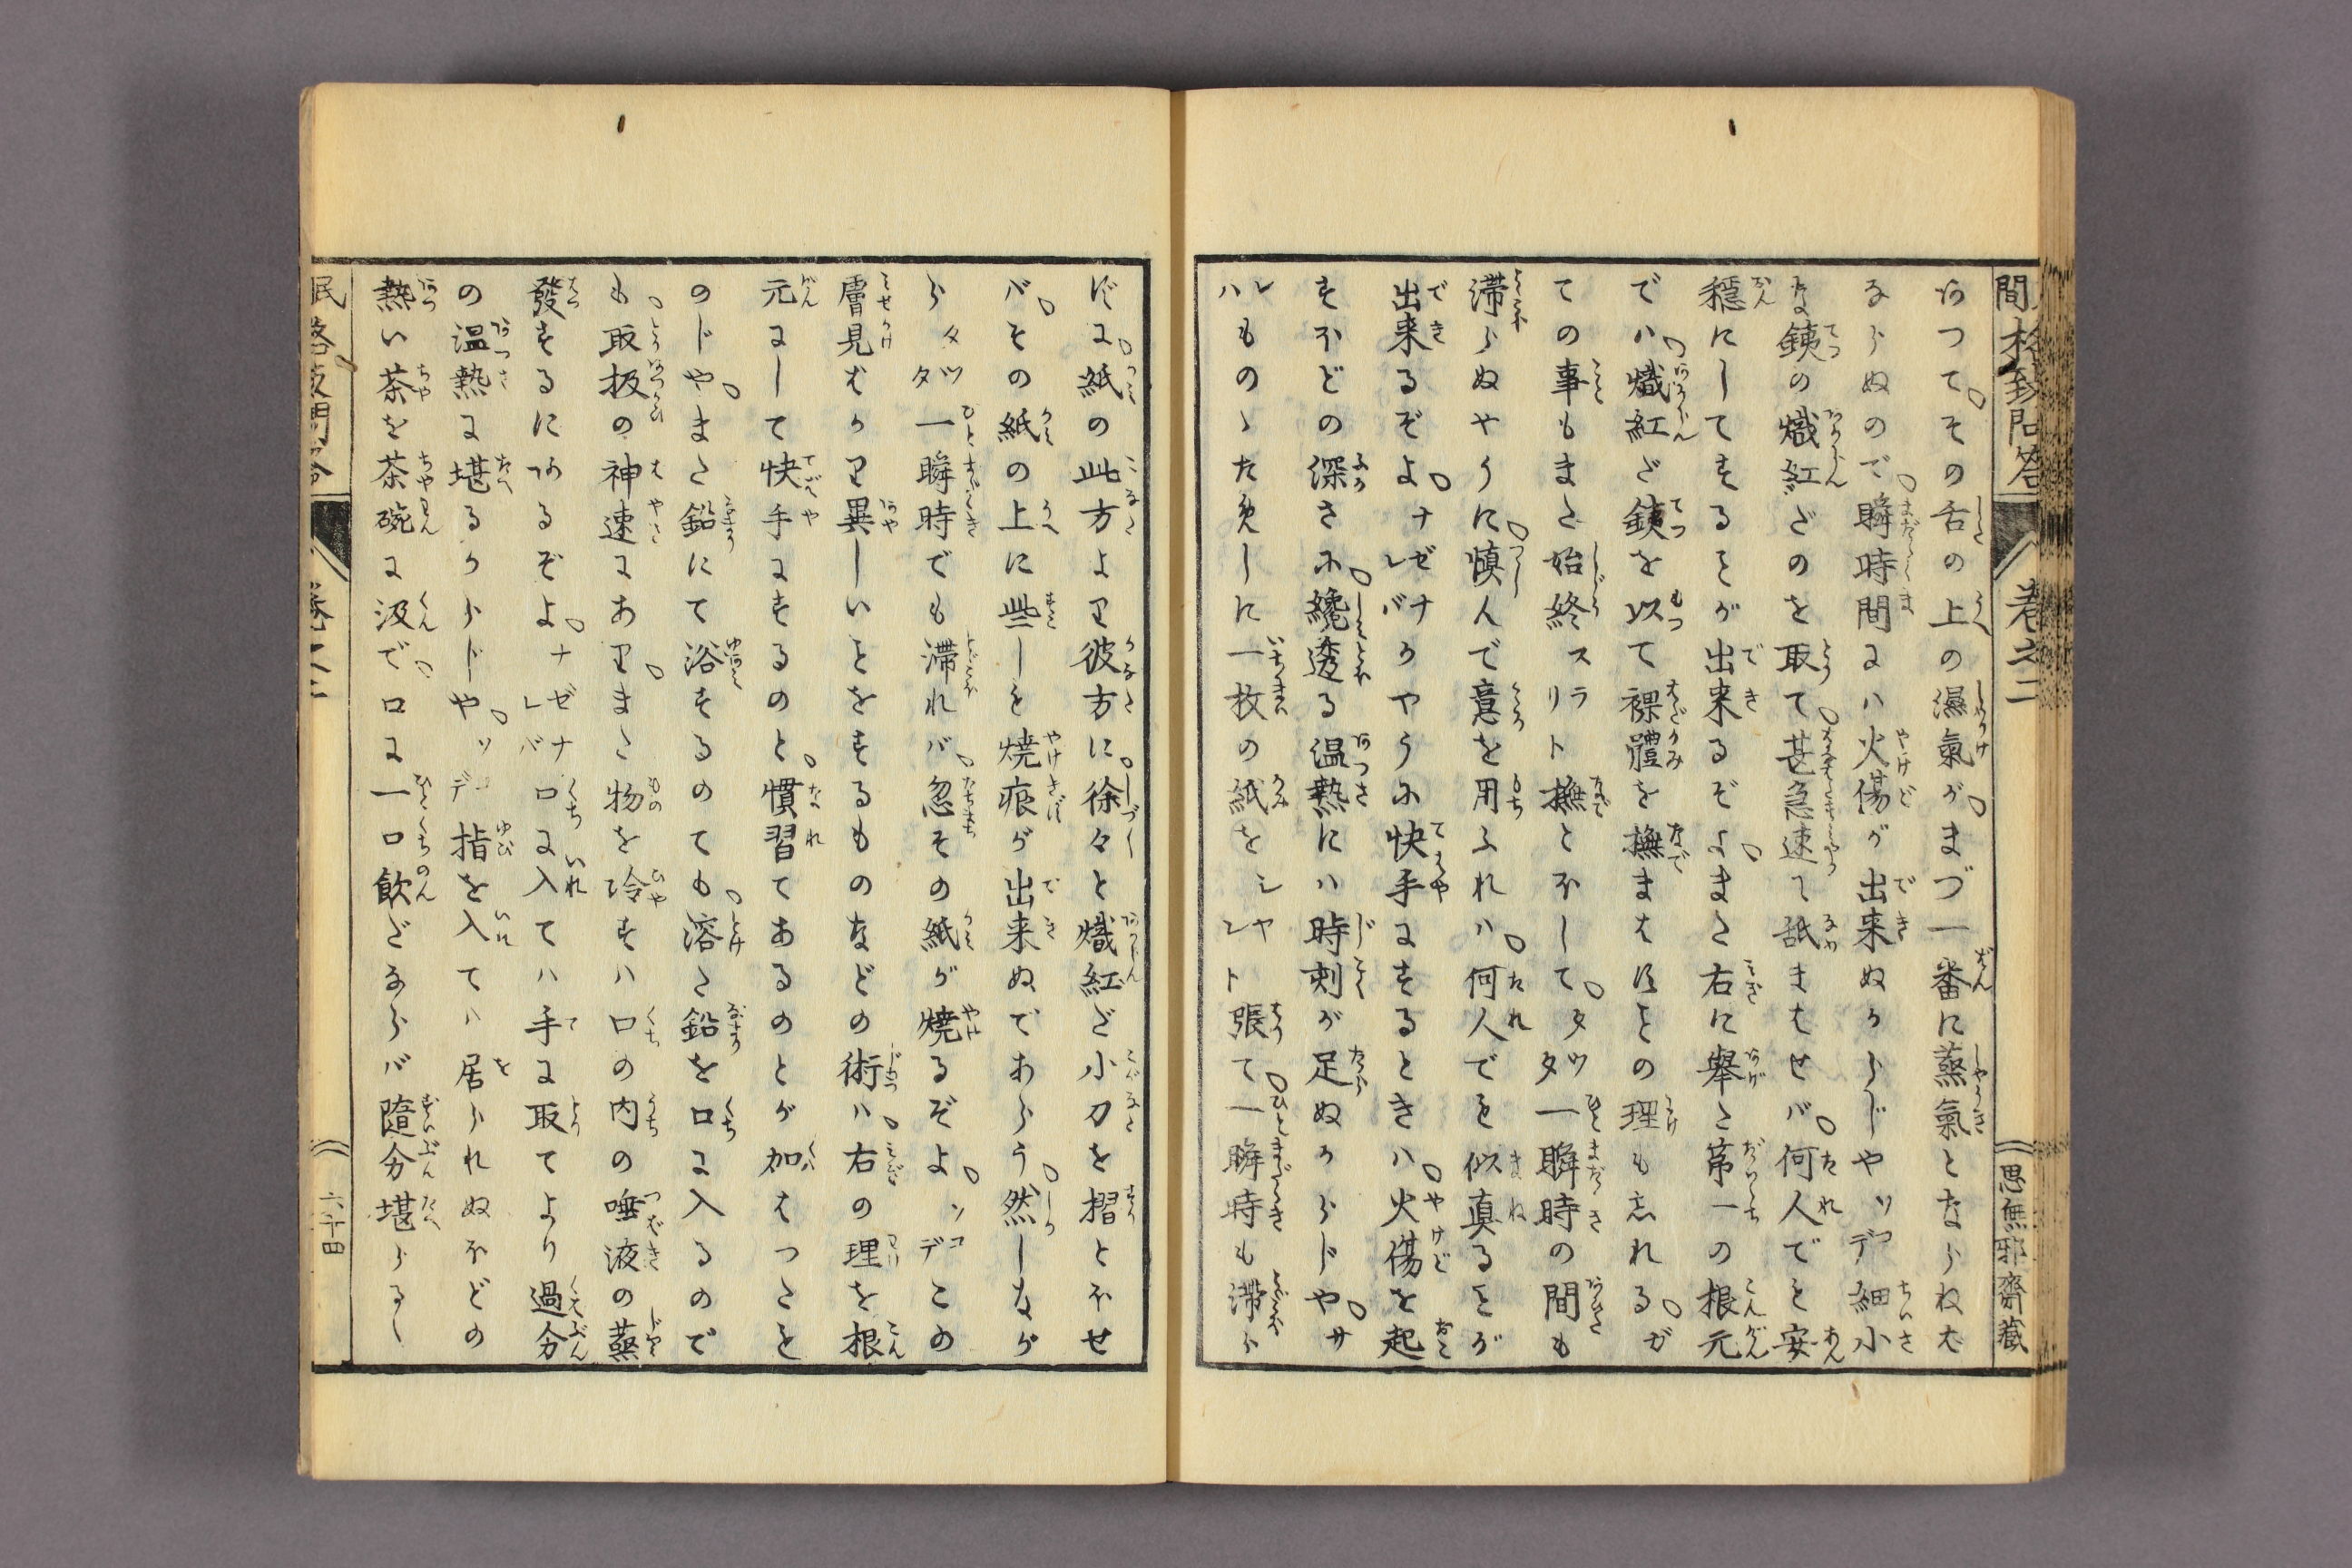 民間格致問答
巻之二
思無邪齋藏
あつて。その舌の上の濕氣が。まづ一番に蒸氣とならねは
ならぬので。瞬時間には火傷が出来ぬからじや ソコデ 細小
な銕の熾紅ざのを取て。甚急速に舐ませば。何人でも安
穩にしてすることが出来るぞよ。また右に舉た第一の根元
では。熾紅ざ銕を以て裸體を撫ますほどの理も志れる。ガ
ての事もまた始終スラリト撫とほして。タッタ一瞬時の間も
滞らぬやうに。慎んで意を用ふれは。何人でも似真ることが
出来るぞよ。ナゼナレバかやうに快手にするときは。火傷を起
すほどの深さに。纔透る温熱には時刻が足ぬからじや。サ
レハものゝためしに一枚の紙をシャント張て。一瞬時も滞ら
ずに。紙の此方より彼方に。徐々と熾紅ざ小刀を摺とほせ
バ。その紙の上に些しも焼痕が出来ぬであらう。然しなが
らタッタ一瞬時でも滞れバ。忽その紙が焼るぞよ。ソコデこの
膚見せかり異しいことをするものなどの術は。右の理を根
元にして快手にするのと。慣習てあるのとが加はつたも
のじや。また鉛にて浴するのても。溶た鉛を口に入るので
も。取扱の神速にあり。また物を冷すハ口の内の唾液の蒸
發するにあるぞよ。ナゼナレバ口に入てハ手に取てより過分
の温熱に堪るからじや。ソコデ指を入てハ居られぬほどの
熱い茶を茶碗に汲で。口に一口飲ざならバ隨分堪らるし
六十四